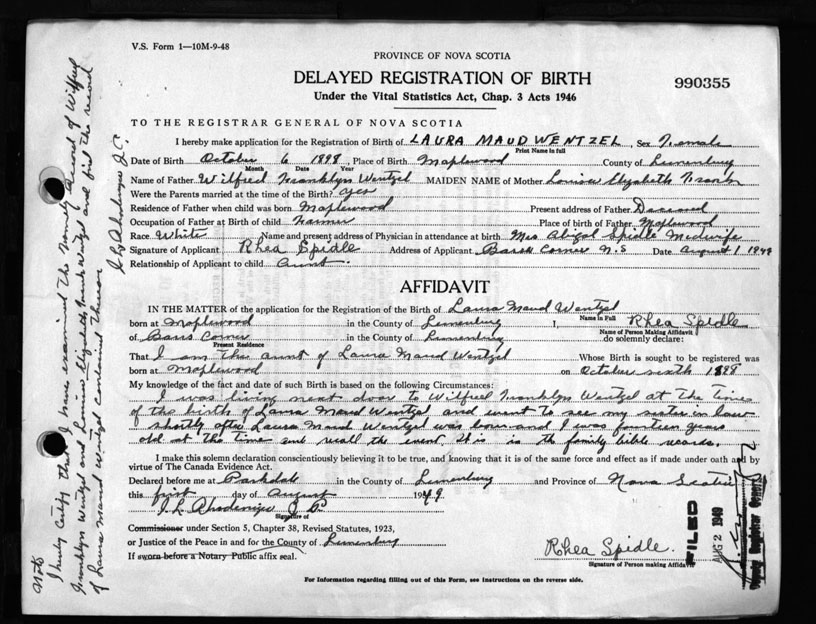 V.S. Form 1—10M-9-48
PROVINCE OF NOVA SCOTIA
DELAYED REGISTRATION OF BIRTH
990355
Under the Vital Statistics Act, Chap. 3 Acts 1946
TO THE REGISTRAR GENERAL OF NOVA SCOTIA
I hereby make application for the Registration of Birth of LAURA MAUD WENTZEL, Sex Female
Print Name in full
Date of Birth October 6 1898, Place of Birth Maplewood County of Lunenburg
Month Date Year
Name of Father Wilfred Franklyn Wentzel MAIDEN NAME of Mother Louisa Elyzabeth Frank
Were the Parents married at time of the Birth? Yes
Residence of Father when child was born Maplewood Present address of Father Deceased
Occupation of Father at Birth of child Farmer Place of birth of Father Maplewood
Race White Name and present address of Physician in attendance at birth Mrs Abigal Spidle Midwife
Signature of Applicant Rhea Spidle Address of Applicant Barss Corner N.S Date August 1 1949
Relationship of Applicant to child Aunt
AFFIDAVIT
IN THE MATTER of the application for the Registration of Birth of Laura Maud Wentzel
Name in Full
born at Maplewood in the County of Lunenburg I, Rhea Spidle
Name of Person Making Affidavit
of Barss Corner in the County of Lunenburg do solemnly declare:
Present Residence
That I am the aunt of Laura Maud Wentzel Whose Birth is sought to be registered was
born at Maplewood on October sixth 1898
My knowledge of the fact and date of such Birth is based on the following Circumstances:
I was living next door to Wilfred Franklyn Wentzel at the time
of the birth of Laura Maud Wentzel and went to see my sister in law
shortly after Laura Maud Wentzel was born and I was fourteen years
old at the time and recall the event. It is in the family bible records.
I make this solemn declaration conscientiously believing it to be true, and knowing that it is of the same force and effect as if made under oath and by
virtue of The Canada Evidence Act.
Declared before me at Parkdale in the County of Lunenburg and Province of Nova Scotia
this first day of August 1949
J.L. Rhodenizer J.P.
Signature of
Commissioner under Section 5, Chapter 38, Revised Statutes, 1923,
or Justice of the Peace in and for the County of Lunenburg
If sworn before a Notary Public affix seal.
Rhea Spidle.
Signature of Person making Affidavit
For Information regarding filling out of this Form, see instructions on the reverse side.
Note
I hereby certify that I have examined the Family Record of Wilfred
Franklyn Wentzel and Louisa Elyzabeth Frank Wentzel and find the record
of Laura Maud Wentzel contained therein
J.L. Rhodenizer J.P.
FILED
AUG 2 1949
Deputy Registrar General